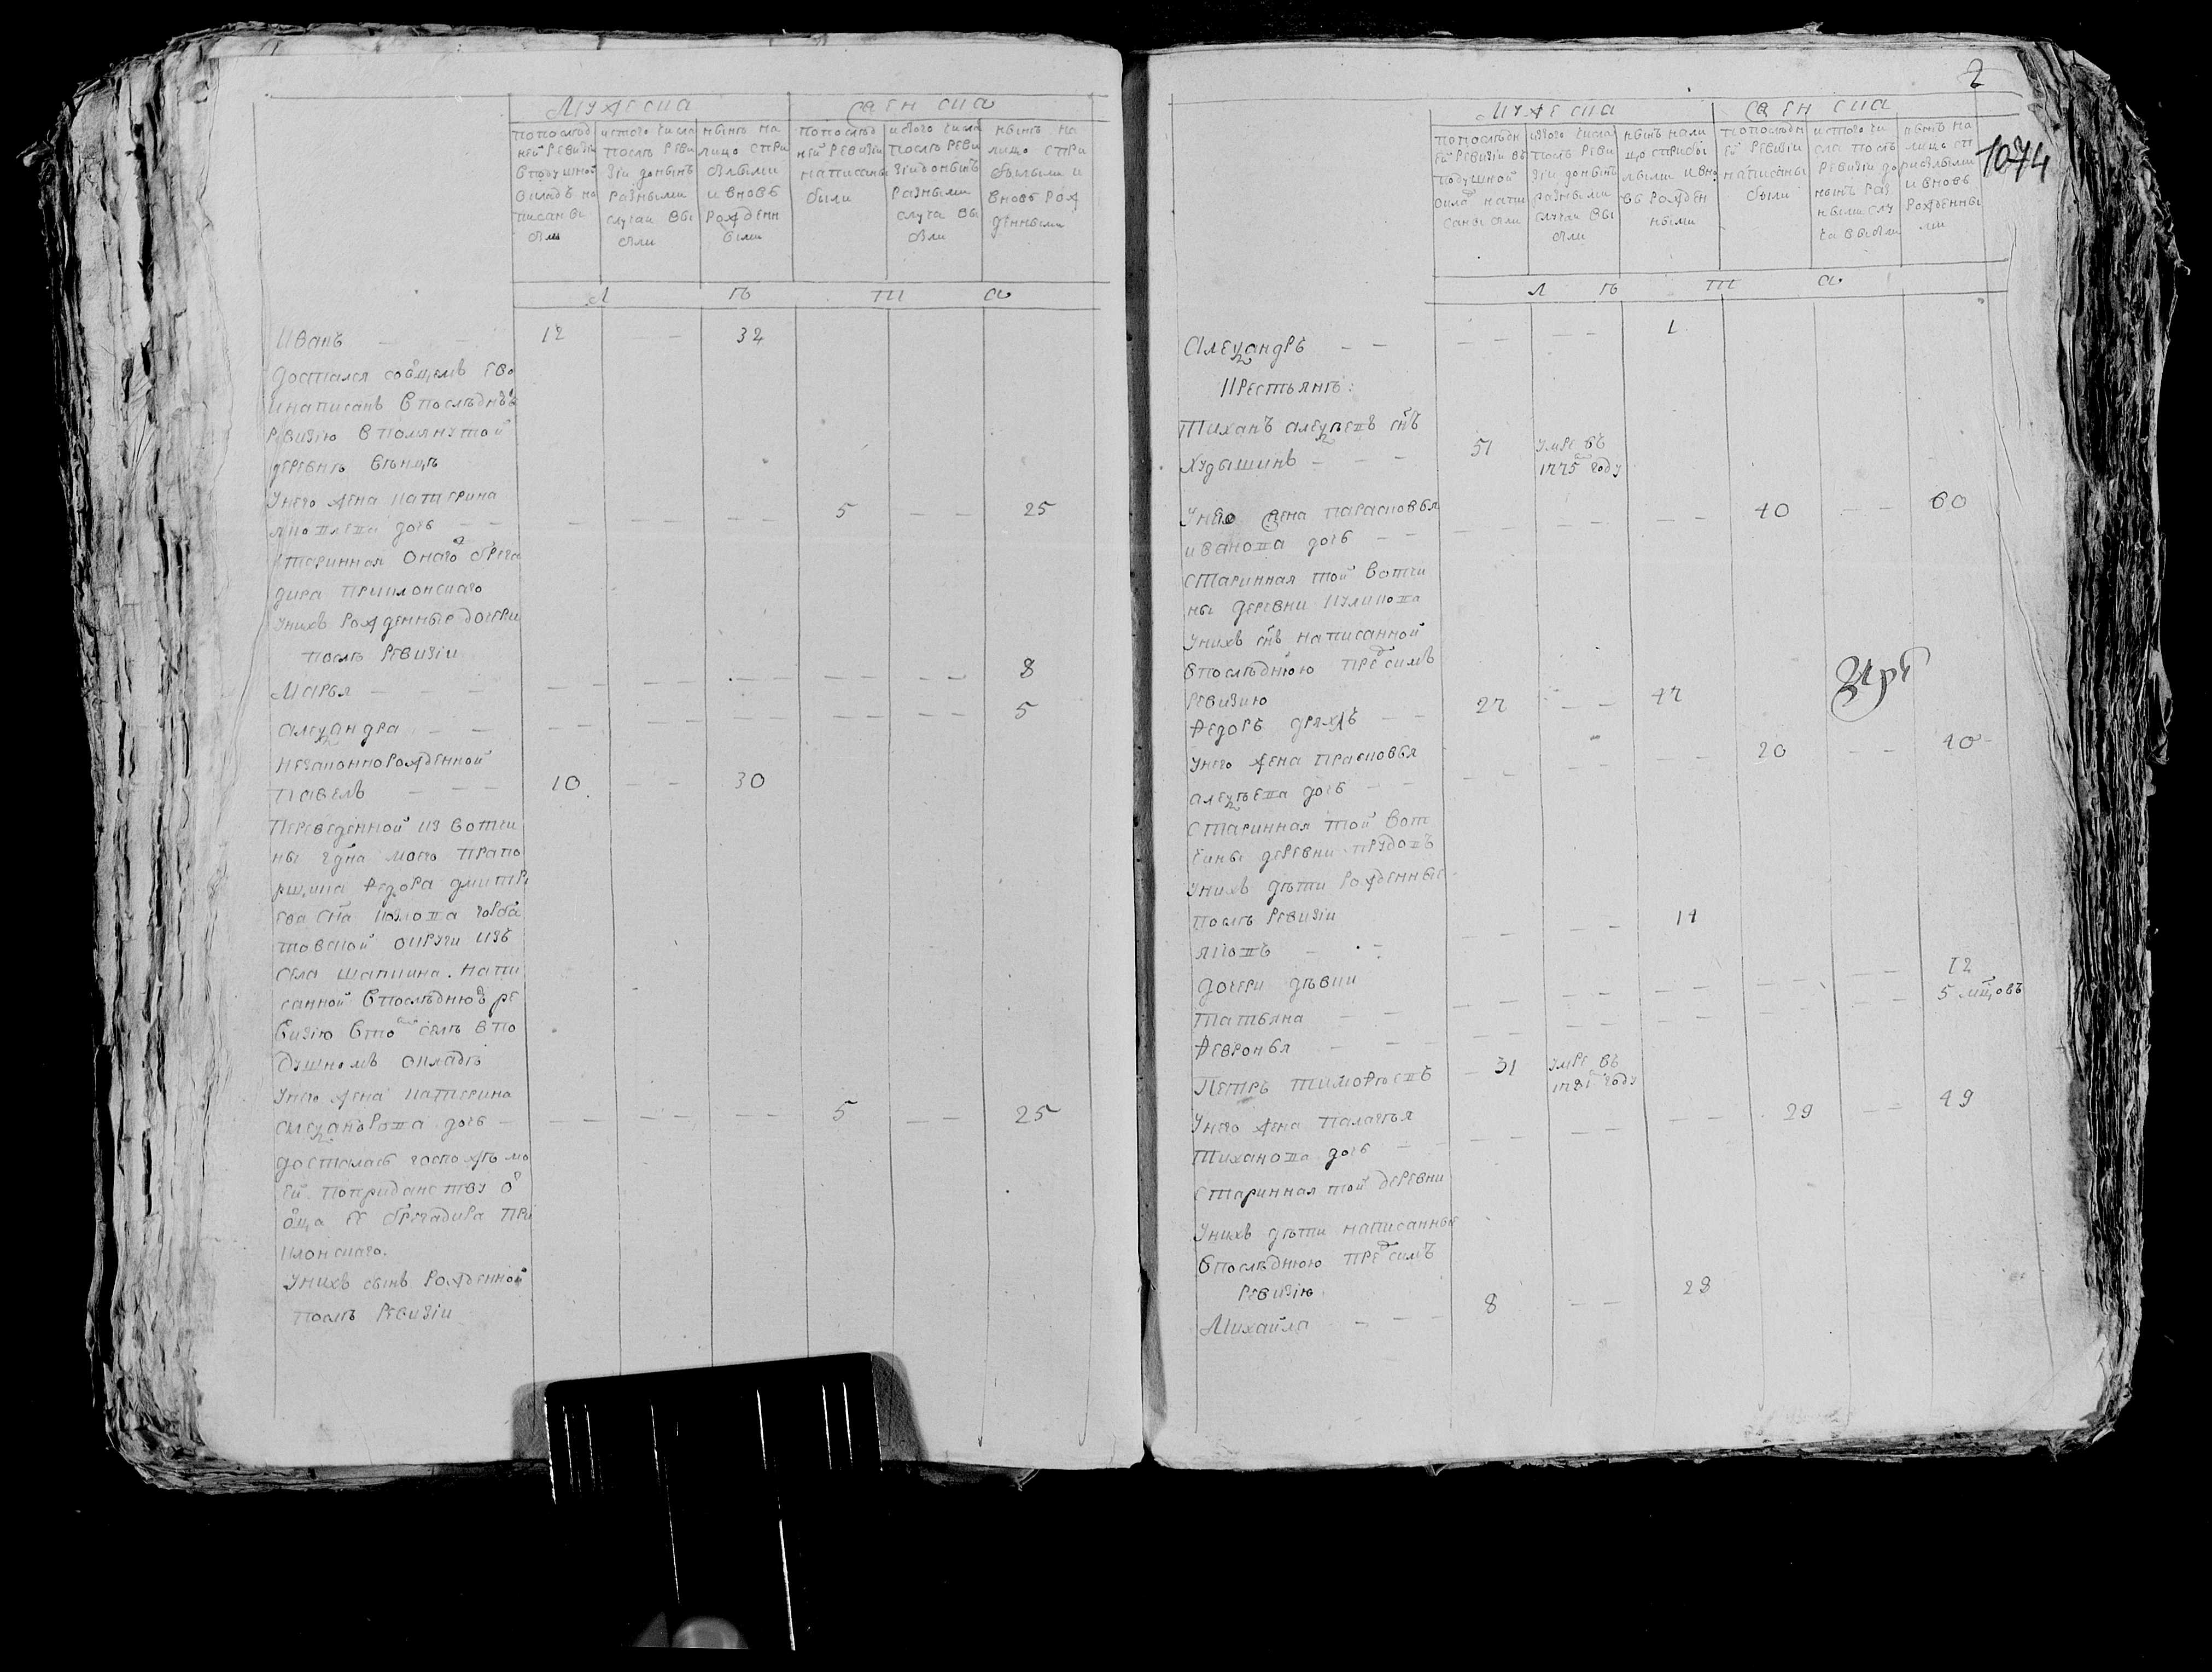 Мужеска
Женска
попослѣд
ней ревизіи
вподушной
окладъ на
писаны
были
истого числа
послѣ реви
зіи донынѣ
разными
случаи вы
были
нынѣ на
лицо спри
былыми
и вновь
рожденн
ыми
попослѣд
ней ревизіи
написаны
были
истого числа
послѣ реви
зіи донынѣ
разными
случа вы
были
нынѣ на
лицо спри
былыми и
вновь рож
денными
Л ѣ т а
Иванъ — — 12 — — 32
достался собщемъ ево
инаписанъ впослѣднѣю
ревизію впомянутой
деревнѣ
Унего жена Катерина
Яковлева дочь — — — — — — — 5 — — 25
старинная онаго брега
дира Приклонскаго
Унихъ рожденные дочери
послѣ ревизіи
Марья — — — — — — — — — — — 8
Александра — — — — — — — — — — — 5
Незаконнорожденной
Павелъ — — — 10 — — 30
Переведенной из вотчи
ны гдна моего прапо
рщика Федора Дмитри
ева сна Козлова Горба
товской округи изъ
села Шапкина. напи
санной впослѣднюю ре
визію втомъ селѣ впо
душномъ окладѣ
Унего жена Катерина
Александрова дочь — — — — — — — 5 — — 25
досталась госпожѣ мо
ей поприданству о
отца ее брегадира При
клонскаго.
Унихъ сынъ рожденной
послѣ ревизіи
2
1074
Мужеска
Женска
попослѣдн
ей ревизіи въ
подушной
оклад напи
саны были
истого числа
послѣ реви
зіи донынѣ
разными
случаи вы
были
нынѣ нали
цо сприбы
лыми ивно
вь рожден
ными
попослѣдн
ей ревизіи
написаны
были
истого чи
сла послѣ
ревизіи до
нынѣ раз
ными слу
ча выбыли
нынѣ на
лицо сп
рибылыми
и вновь
рожденны
ми
Л ѣ т а
Александръ — — — — — — 1
Крестьянѣ:
Тиханъ Алексѣевъ снъ
Худышинъ — — — 51 умре въ
1775 году
Унево жена Парасковья
Иванова дочь — — — — — — — — 40 — — 60
старинная той вотчи
ны деревни Куликова
Унихъ снъ написанной
впослѣднюю предсимъ
ревизію
Федоръ дряхлъ — — 27 — — 47
Унего жена Прасковья
Алексѣева дочь — — — — — — — — 20 — — 40
старинная той вот
чины деревни Прудовъ
Унихъ дѣти рожденные
послѣ ревизіи
Яковъ — — — — — — 14
дочери дѣвки
Татьяна — — — — — — — — — — — — 12
Февронья — — — — — — — — — — — 5 мцовъ
Петръ Тимофѣевъ — 31 умре въ
1781 году
Унего жена Палагѣя
Тиханова дочь — — — — — — — 29 — — 49
старинная той деревни
Унихъ дѣти написанные
впослѣднюю предсимъ
ревизію
Михайла — — — 8 — — 28